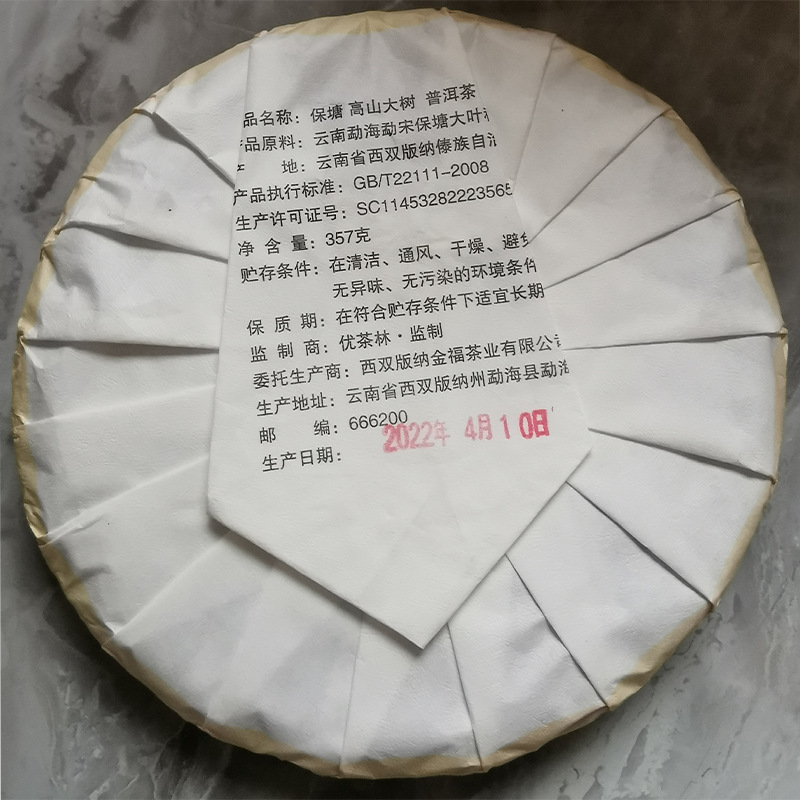 品名称：保塘 高山大树 普洱茶
产品原料：云南勐海勐宋保塘大叶
地：云南省西双版纳傣族自治
产品执行标准：GB/T22111-2008
生产许可证号：SC11453282223565
净 含 量：357克
贮存条件：在清洁、通风、干燥、避免
无异味、无污染的环境条件
保 质 期：在符合贮存条件下适宜长期
监 制 商：优茶林·监制
委托生产商：西双版纳金福茶业有限公司
生产地址：云南省西双版纳州勐海县勐海
邮 编：666200
生产日期：2022年 4月10日